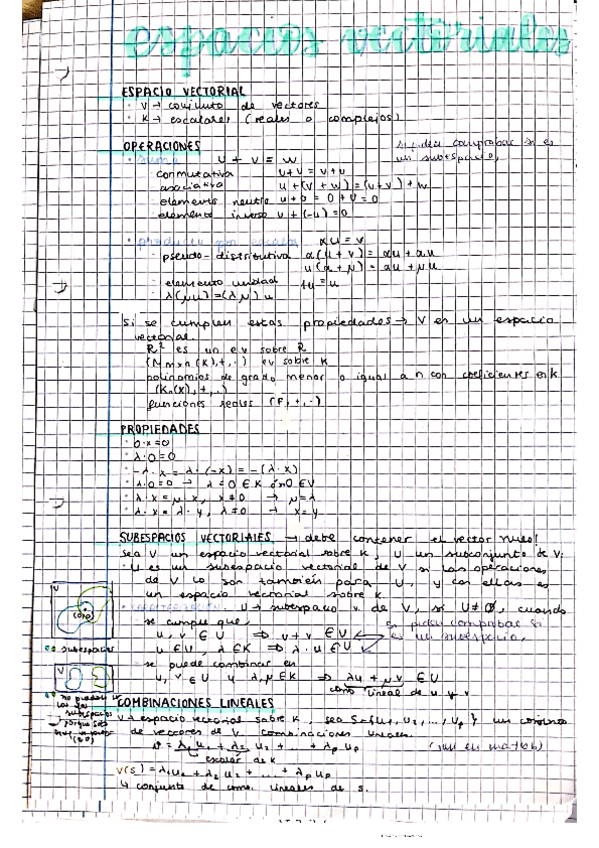 espacios vectoriales
ESPACIO VECTORIAL
· V → conjunto de vectores
· K → escalares (reales o complejos)
OPERACIONES
si piden comprobar si es
un subespacio,
· suma u + v = w
- conmutativa u+v = v+u
- asociativa u+(v+w)=(u+v)+w
- elemento neutro u+0 = 0+v=0
- elemento inverso u+(-u)=0
· producto por escalar αu = v
- pseudo-distributiva α(u+v) = αu + αu
u(α+μ) = αu + μu
- elemento unidad 1u=u
- λ(μu)=(λμ)u
Si se cumplen estas propiedades → V es un espacio
vectorial.
R² es un ev sobre R
(Mmxn(K),+,·) ev sobre K
polinomios de grado menor o igual a n con coeficientes en K
(Kn(x),+,·)
funciones reales (F,+,·)
PROPIEDADES
· 0·x=0
· λ·0=0
· -λ·x = λ·(-x) = -(λ·x)
· λ·x = μ·x, x≠0 → μ=λ
· λ·x = λ·y, λ≠0 → x=y
SUBESPACIOS VECTORIALES → debe contener el vector nulo!
Sea V un espacio vectorial sobre K, U un subconjunto de V:
· U es un subespacio vectorial de V si las operaciones
de V lo son también para U, y con ellas es
un espacio vectorial sobre K
· CARACTERIZACIÓN. U → subespacio v. de V, si U≠∅, cuando
se cumple que,
si piden comprobar si
es un subespacio,
u, v ∈ U ⇒ u+v ∈ U
u ∈ U, λ ∈ K ⇒ λ·u ∈ U
- se puede combinar en
u, v ∈ U y λ,μ ∈ K ⇒ λu + μv ∈ U
comb lineal de u y v
V
(0,0)
subespacios
V
no pueden
subespacios
porque
COMBINACIONES LINEALES
V → espacio vectorial sobre K, sea S={u1, u2, ..., up} un conjunto
de vectores de V. combinaciones lineales
v = λ1u1 + λ2u2 + ... + λpup
escalar de K
V(S) = λ1u1 + λ2u2 + ... + λpup
↳ conjunto de comb. lineales de S.